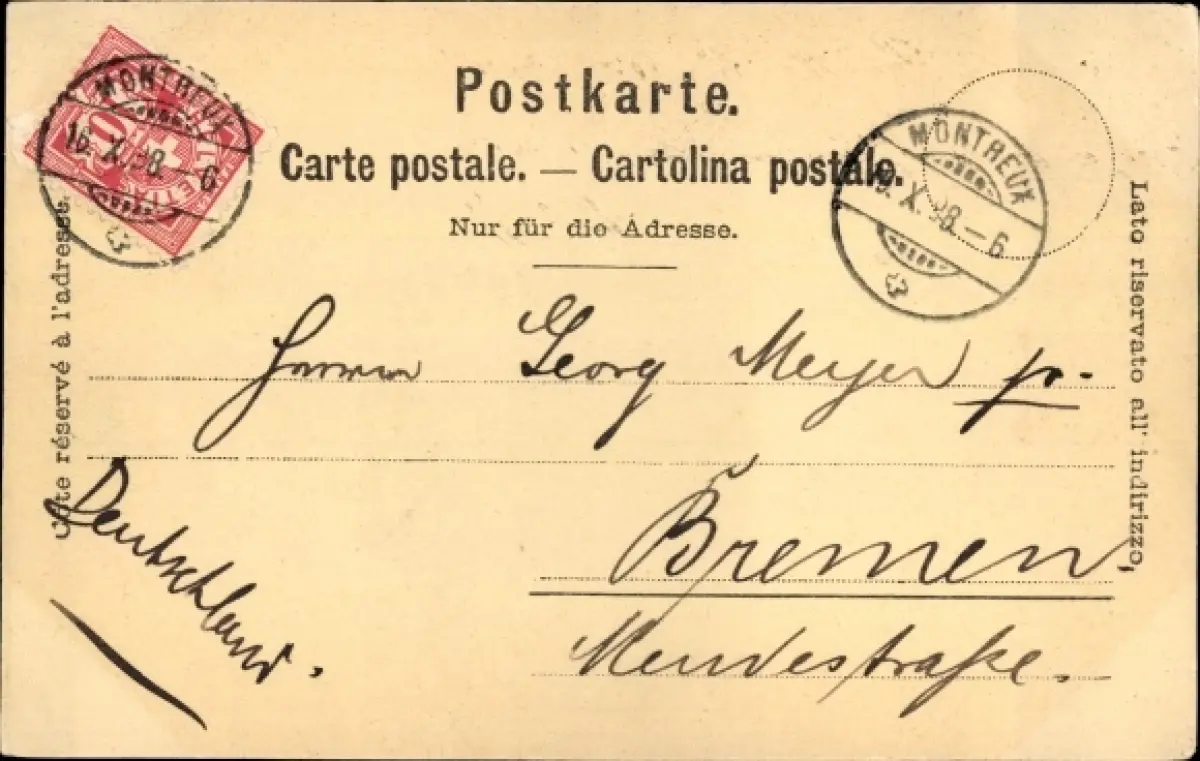 MONTREUX
16. X. 98. – 6
10
Postkarte.
Carte postale. — Cartolina postale.
Nur für die Adresse.
MONTREUX
X. 98. – 6
Côté réservé à l'adresse.
Lato riservato all' indirizzo,
Herrn Georg Meyer jr.
Bremen
Mendestraße.
Deutschland.